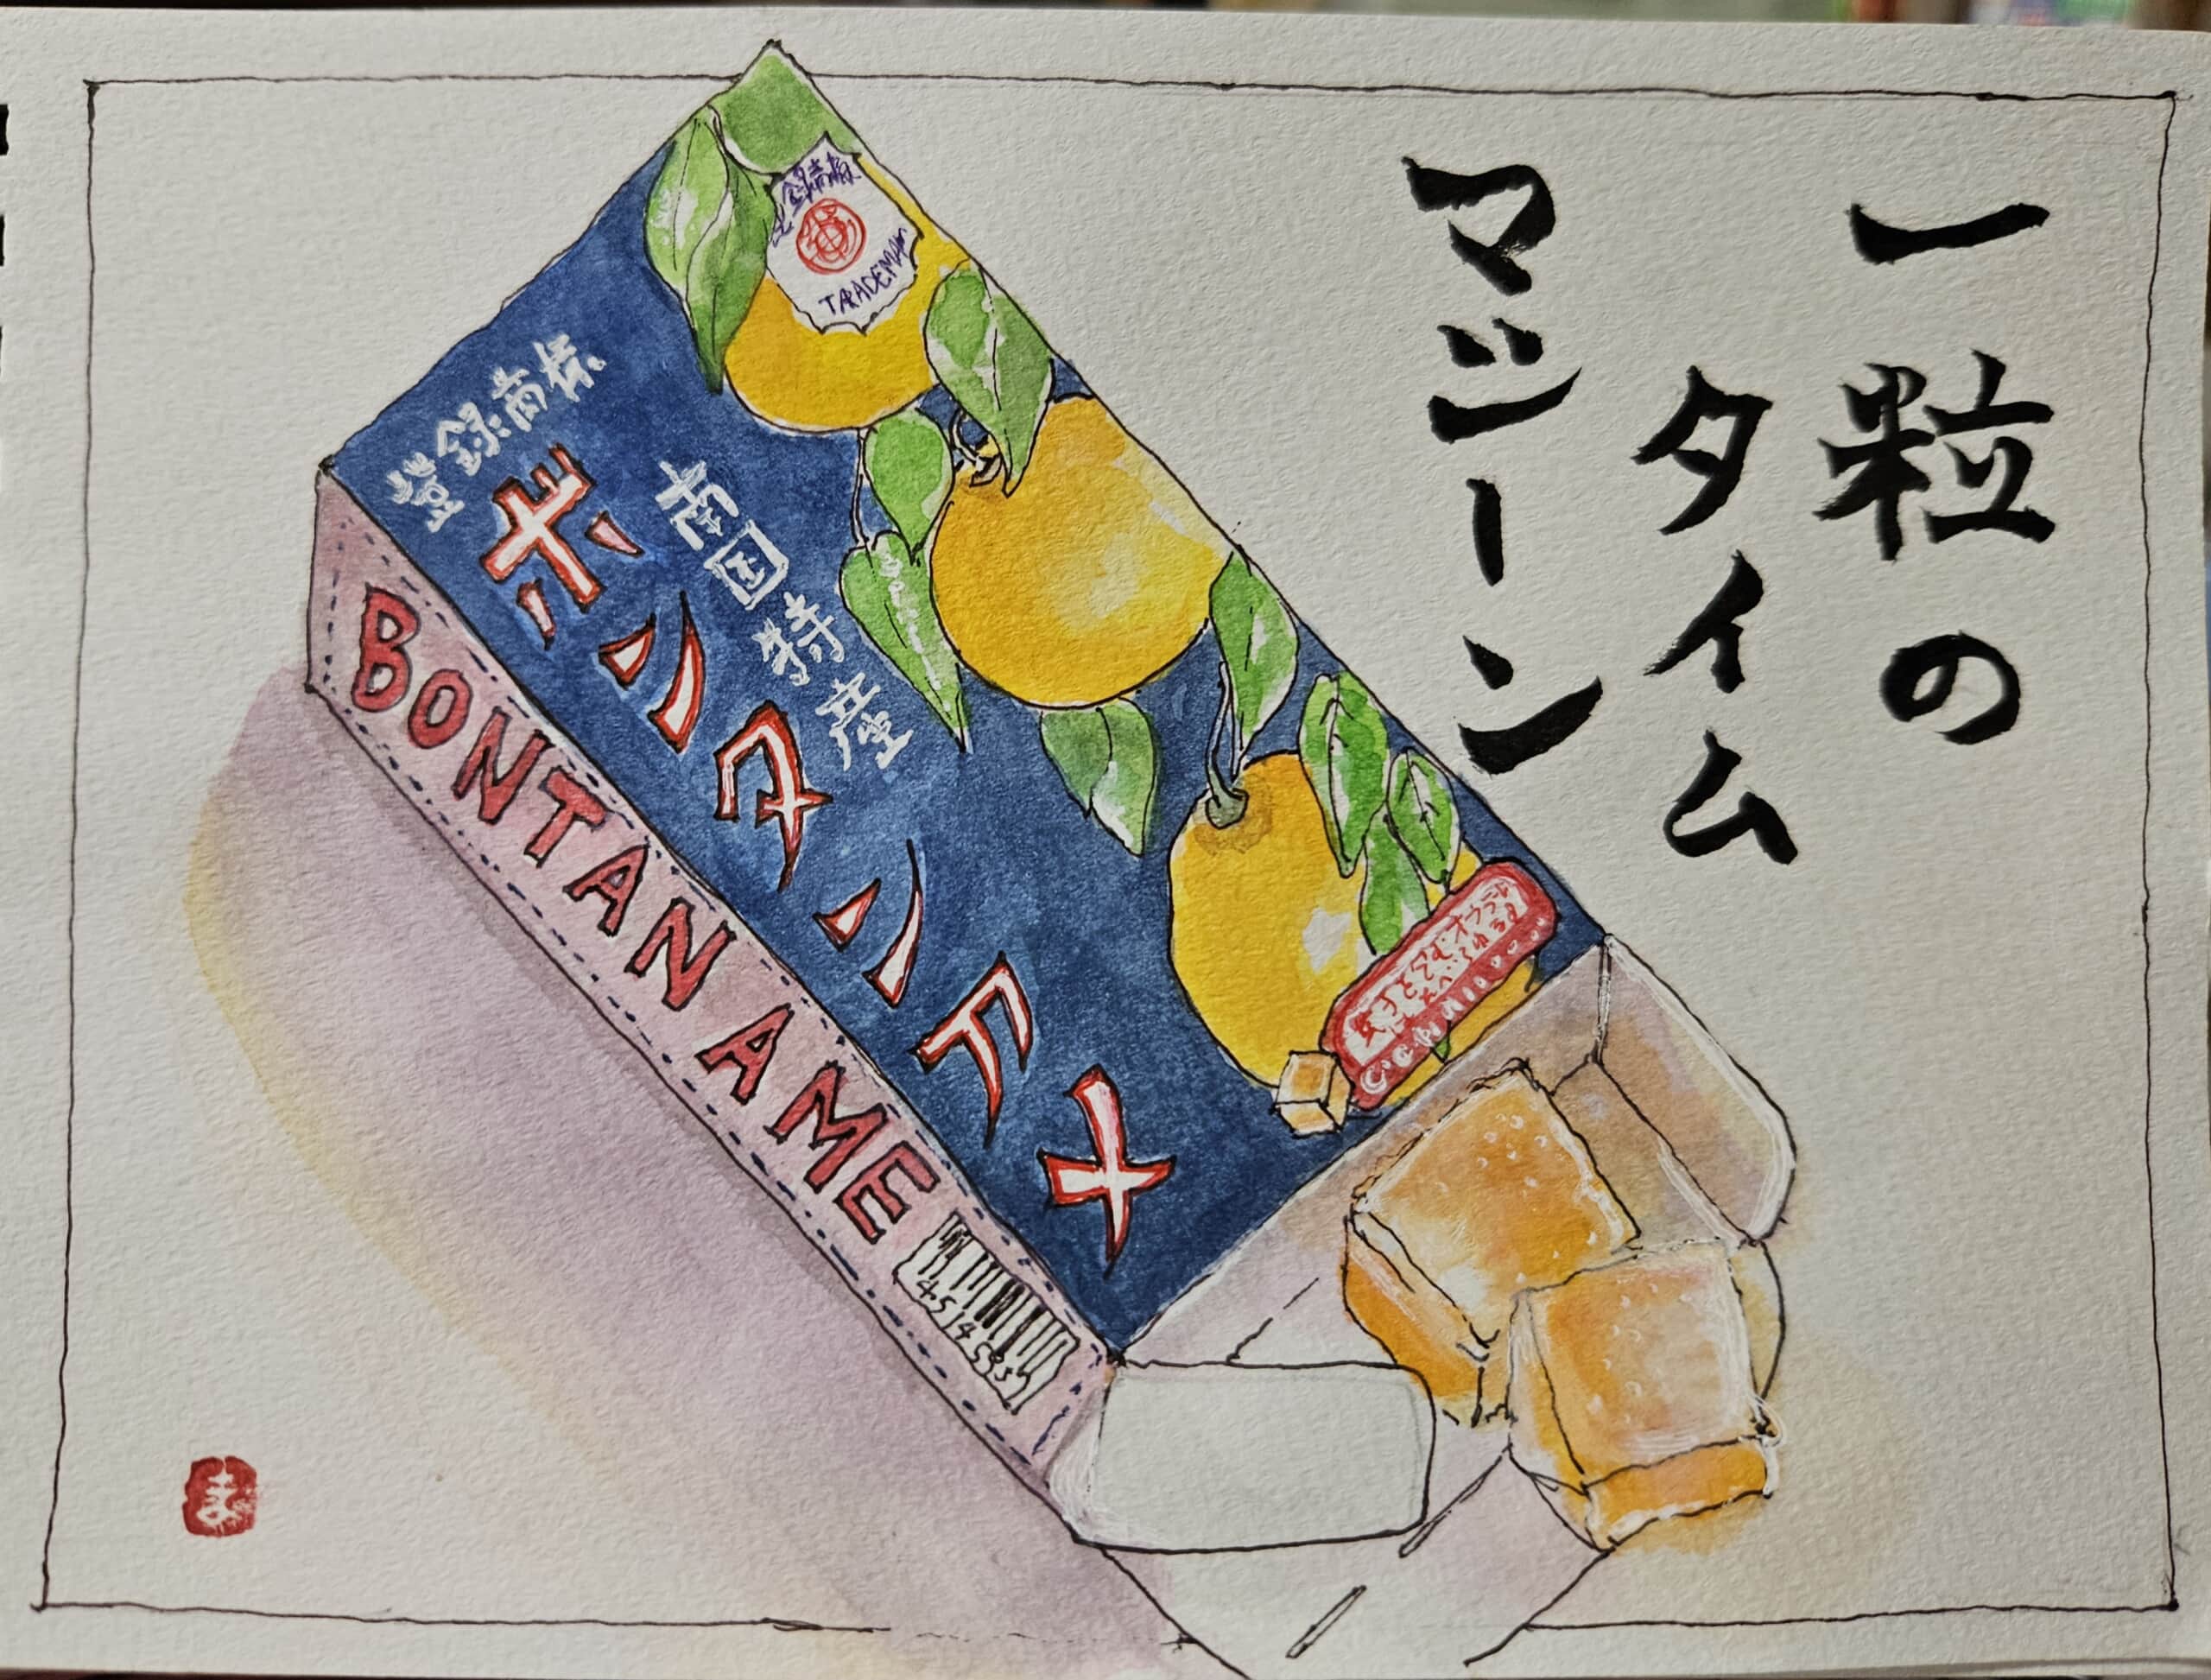 一粒の
タイム
マシーン
登録商標
TRADEMARK
登録商標
南国特産
ボンタンアメ
BONTAN AME
ま